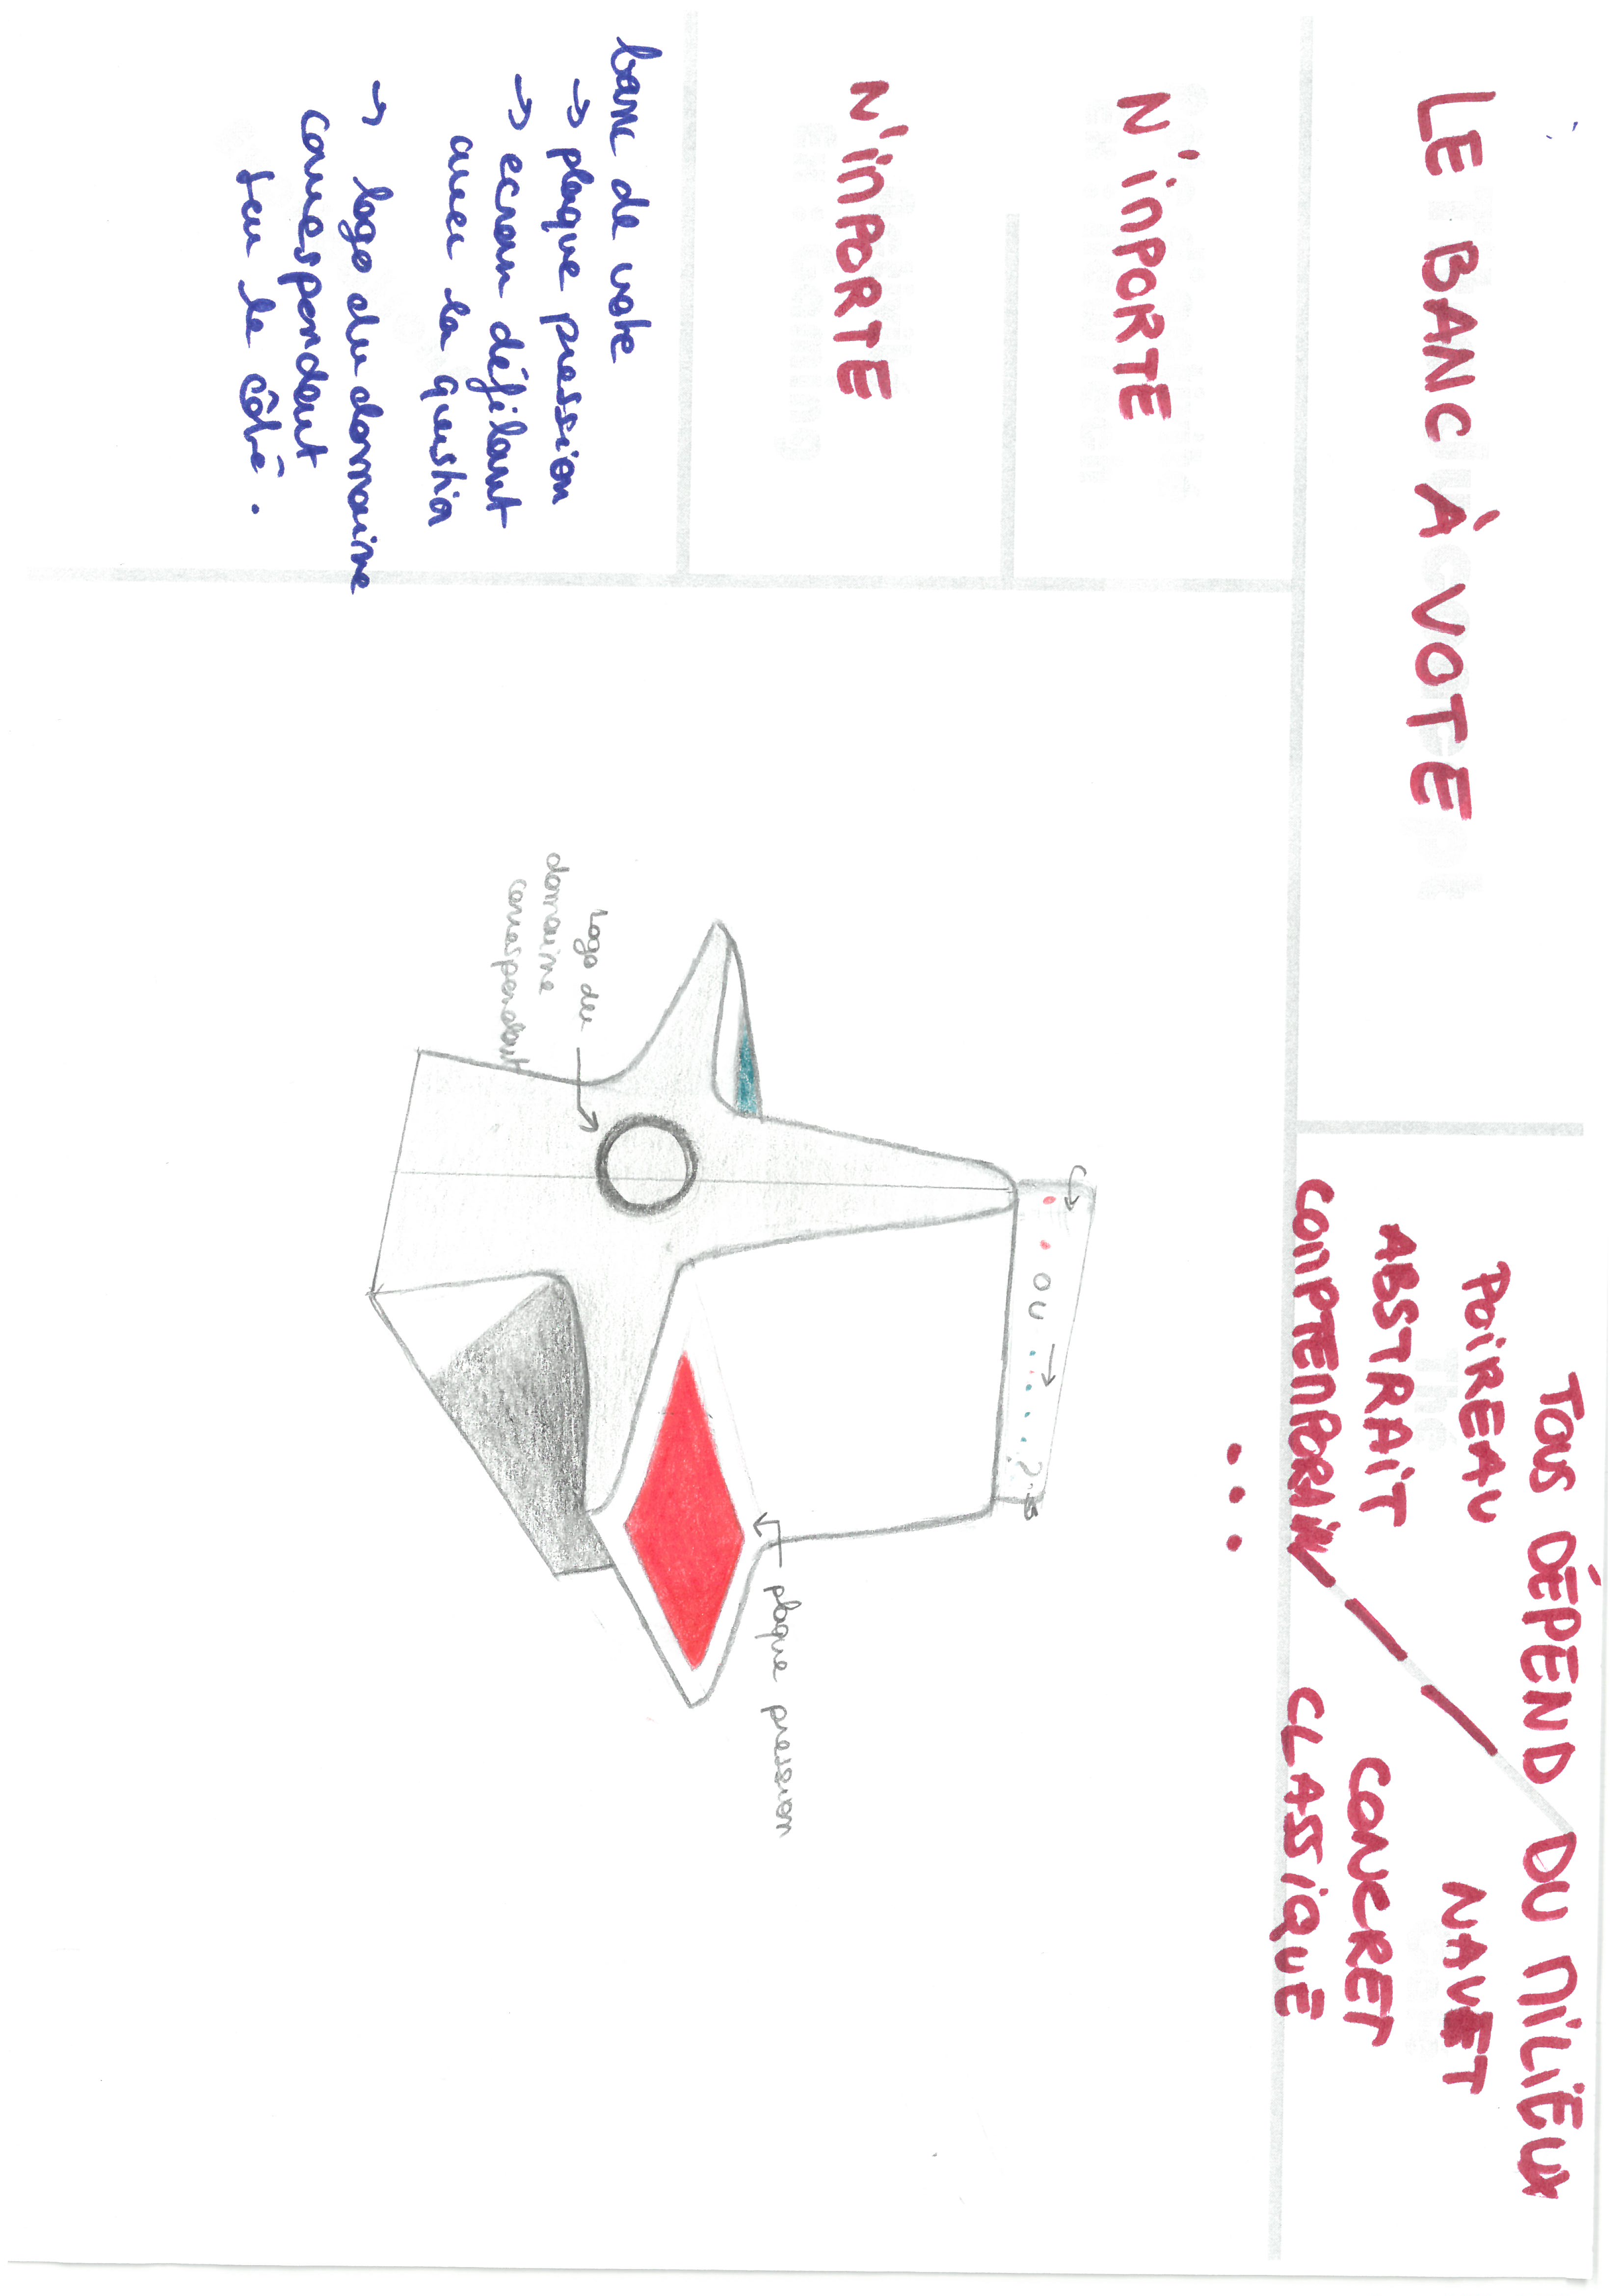 LE BANC À VOTE
TOUS DÉPEND DU MILIEUX
POIREAU
NAVET
ABSTRAIT
CONCRET
CONTEMPORAIN
CLASSIQUE
...
N'INPORTE
N'INPORTE
banc de vote
→ plaque pression
→ ecran défilant
avec la question
→ logo du domaine
correspondant
sur le côté.
OU → ?
plaque pression
logo du
domaine
correspondant